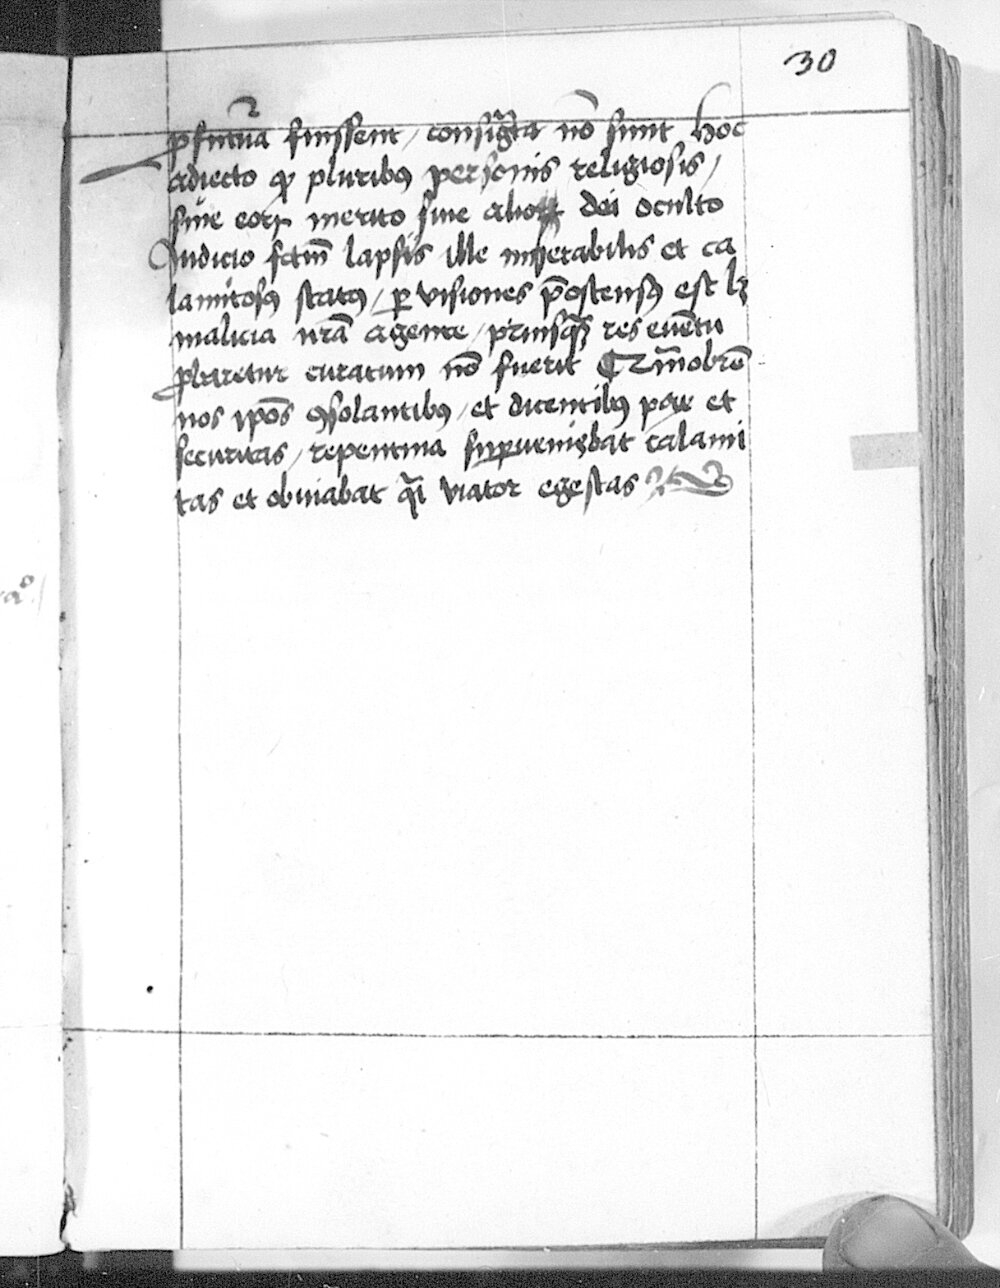 30
ꝓfutura fuissent / consig̃ta nō sunt hoc
adiecto ꝙ pluribꝰ personis religiosis /
siue eoꝝ merito siue alioꝝ dei oculto
Iudicio fctm̄ lapsis ille miserabilis et ca
lamitosꝰ statꝰ / ꝑ visiones p̄ostensꝰ est lꝫ
malicia nr̄a agente / priusq̄ꝫ res euētu
ꝓbaretur curatum nō fuerit
nos ip̄os ꝯsolantibꝰ / et dicentibꝰ pax et
securitas / repentina suꝑueniebat calami
tas et obuiabat q̄i viator egestas